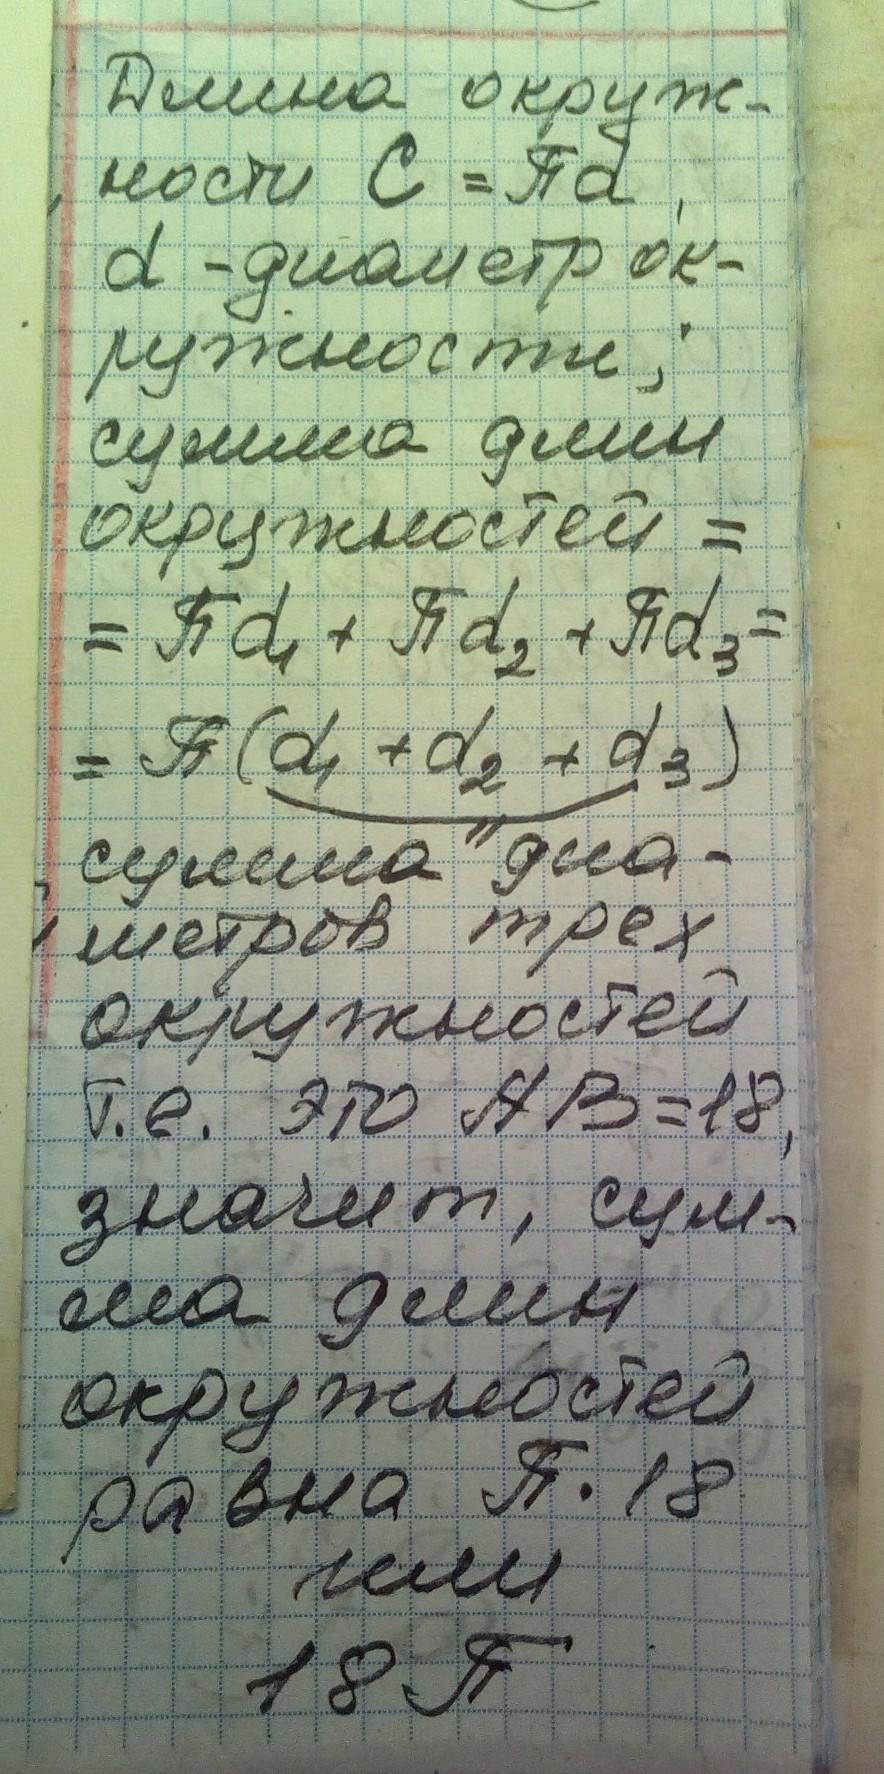 Длина окруж-
ности C = πd,
d - диаметр ок-
ружности;
сумма длин
окружностей =
= πd₁ + πd₂ + πd₃ =
= π(d₁ + d₂ + d₃)
сумма " диа-
метров трех
окружностей
т.е. это AB=18,
значит, сум-
ма длин
окружностей
равна π · 18
или
18 π